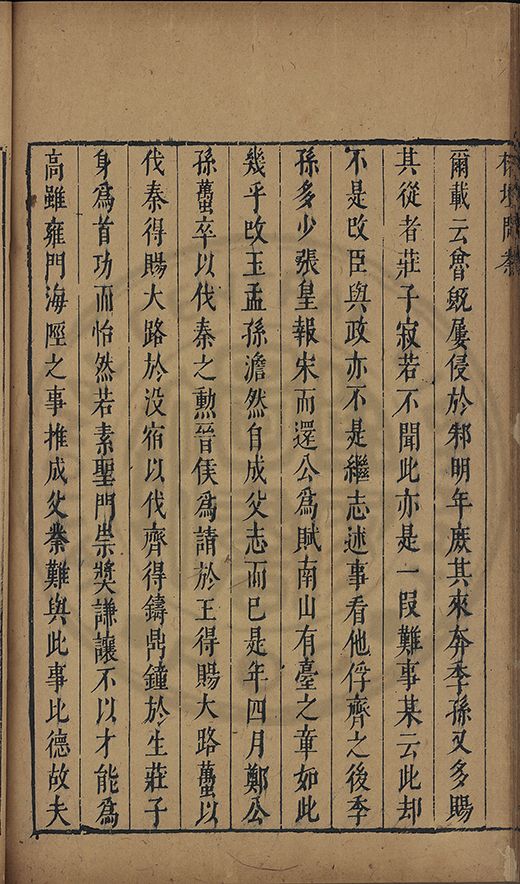 榕壇問業
爾載云魯旣屢侵於邾明年庻其來奔季孫又多賜
其從者莊子寂若不聞此亦是一叚難事某云此却
不是改臣與政亦不是繼志述事看他俘齊之後季
孫多少張皇報宋而還公為賦南山有臺之章如此
幾乎改玉孟孫澹然自成父志而已是年四月鄭公
孫蠆卒以伐秦之勲晉侯為請於王得賜大路蠆以
伐秦得賜大路於没宿以伐齊得鑄鼎鐘於生莊子
身為首功而怡然若素聖門崇奬謙讓不以才能為
高雖雍門海陘之事推成父𣗳難與此事比德故夫